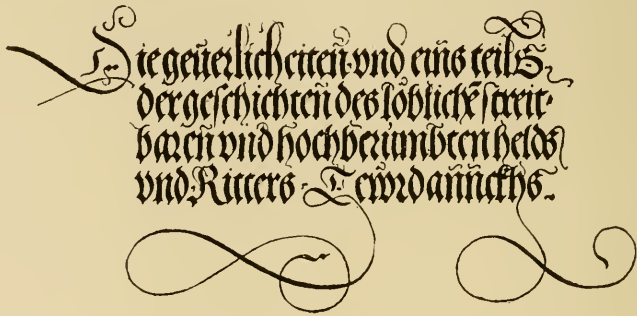 Die geüerlicheiten̄ vnd eins teils
der geschichten̄ des loblichē streit-
baren̄ vnd hochberümbten helds
vnd Ritters Tewrdann̄ckhs.